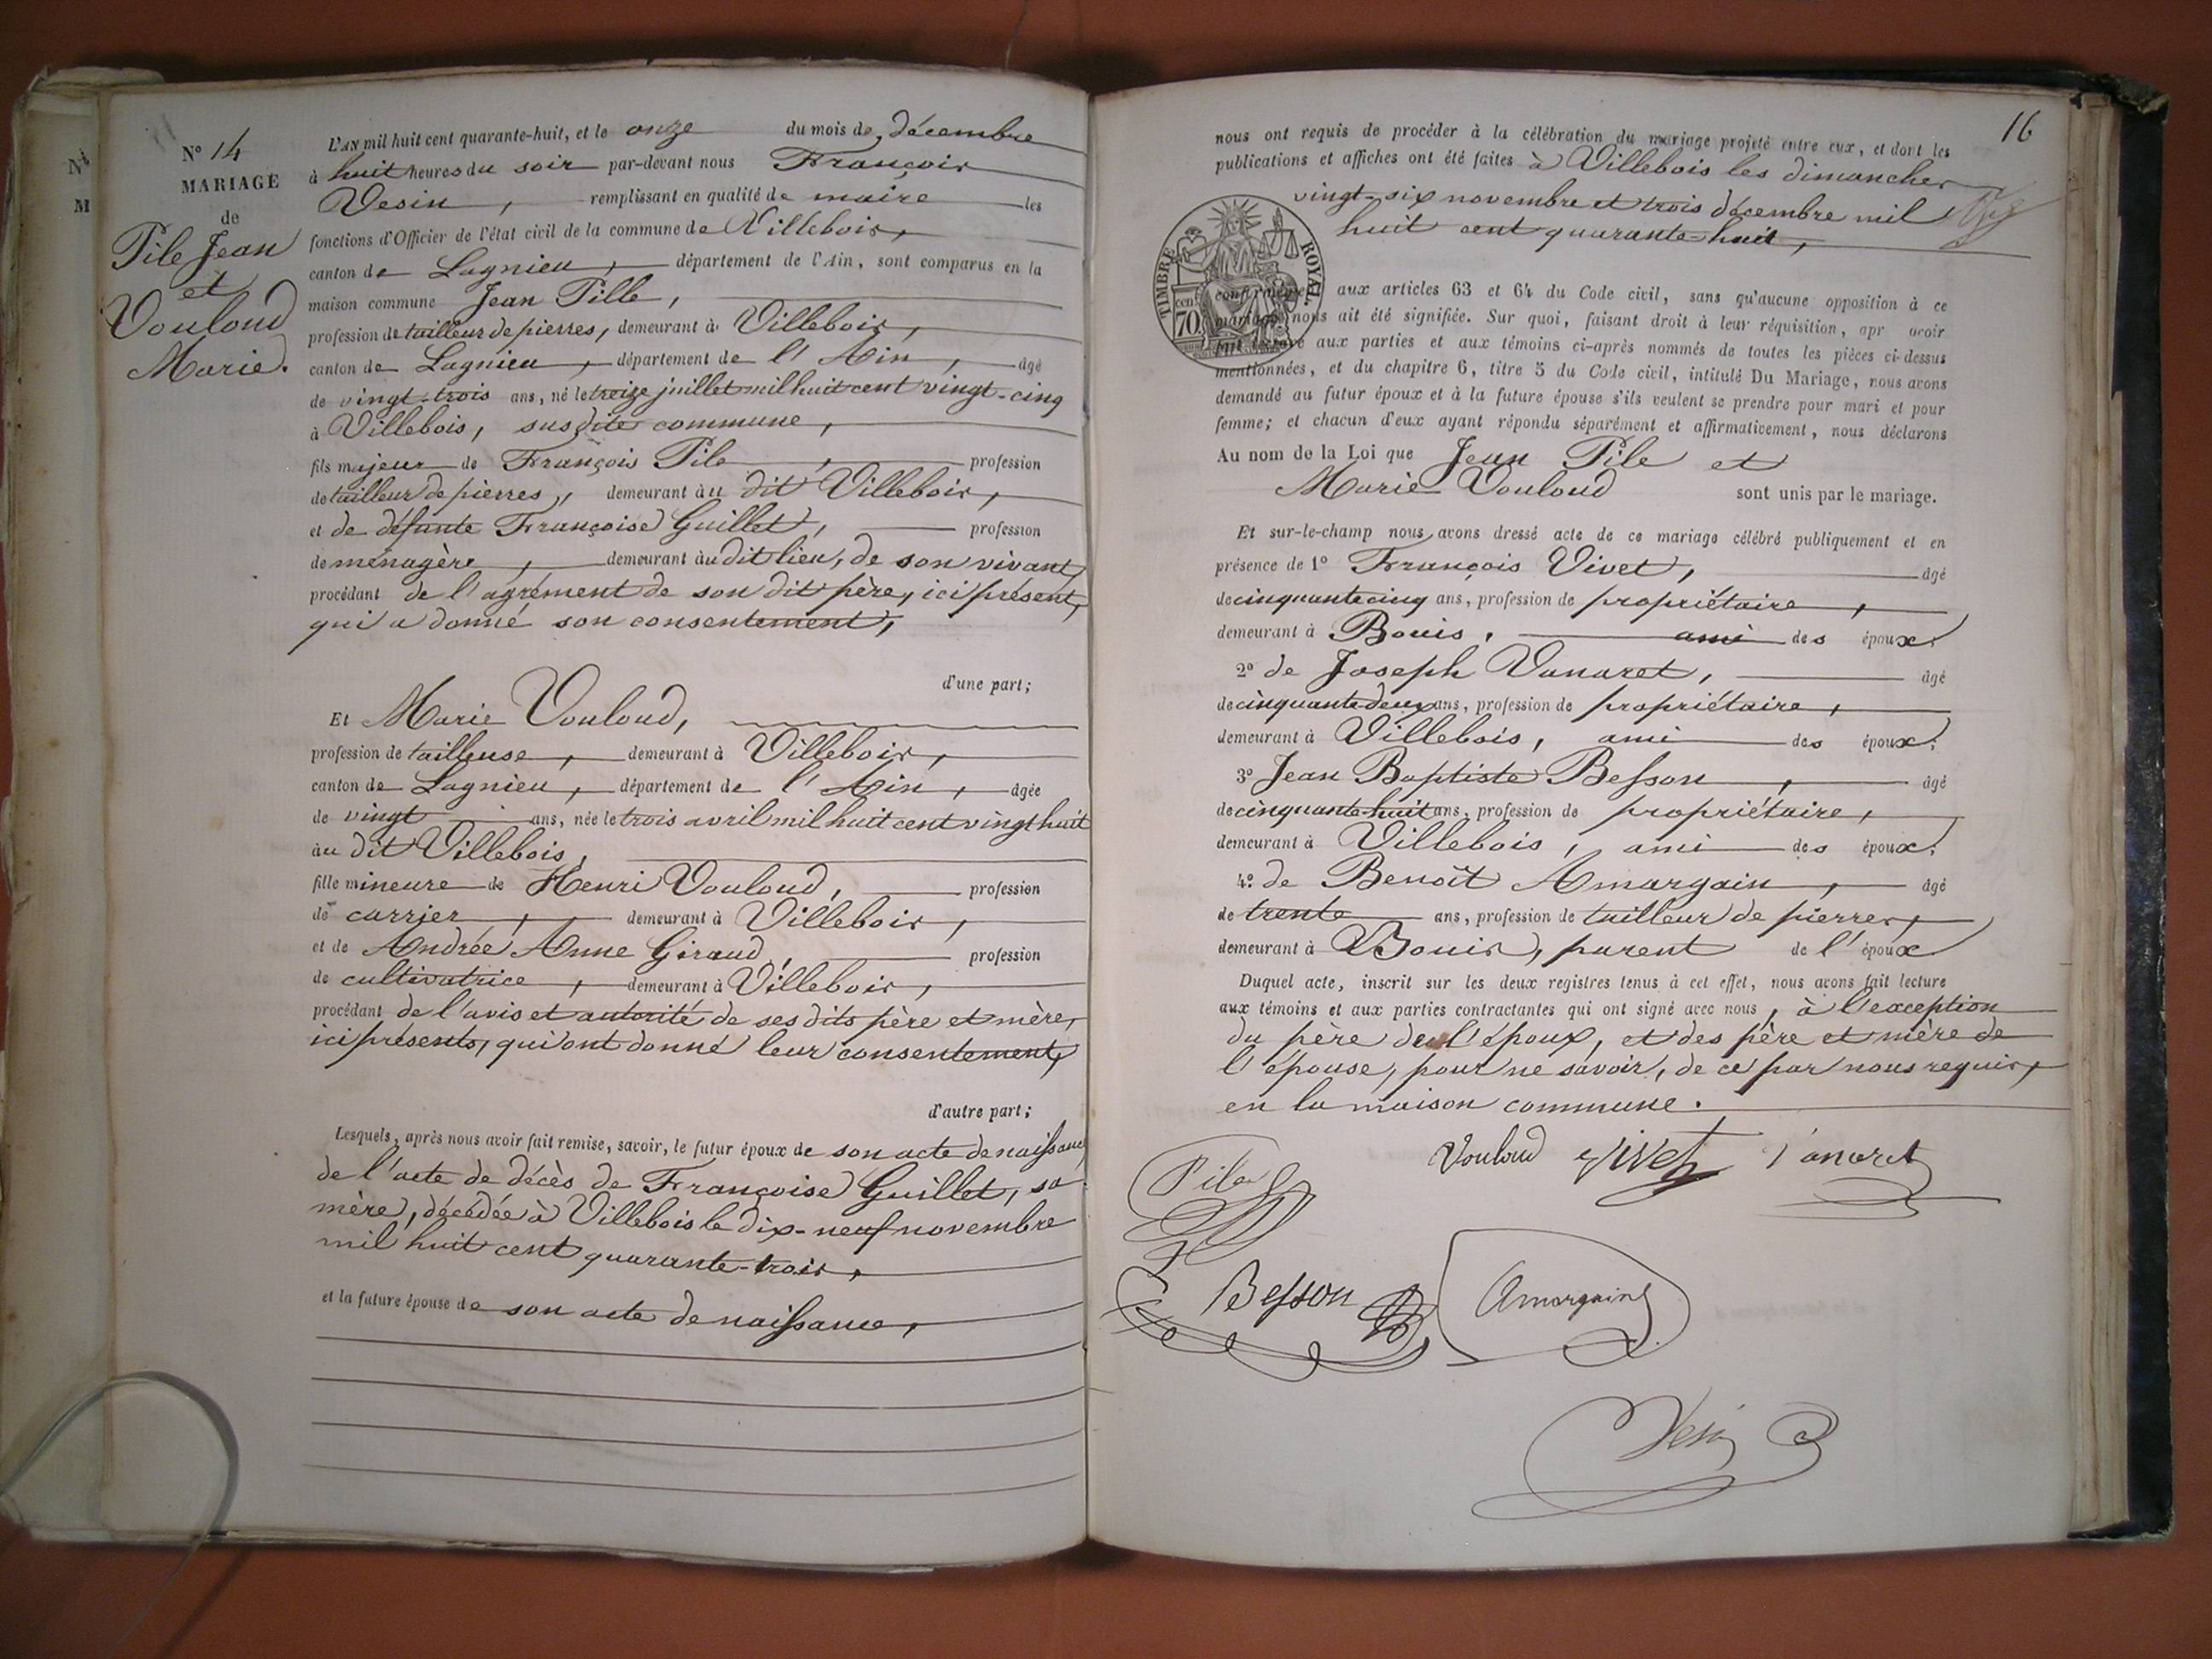 N° 14
MARIAGE
de
Pile Jean
et
Vouloud
Marie.
L'AN mil huit cent quarante-huit, et le onze du mois de décembre
à huit heures du soir par-devant nous François
Vesin, remplissant en qualité de maire les
fonctions d'Officier de l'état civil de la commune de Villebois,
canton de Lagnieu, département de l'Ain, sont comparus en la
maison commune Jean Pille,
profession de tailleur de pierres, demeurant à Villebois,
canton de Lagnieu, département de l'Ain, âgé
de vingt-trois ans, né le treize juillet mil huit cent vingt-cinq
à Villebois, susdite commune,
fils majeur de François Pile, profession
de tailleur de pierres, demeurant àu dit Villebois,
et de défunte Françoise Guillet, profession
de ménagère, demeurant àu dit lieu, de son vivant,
procédant de l'agrément de son dit père, ici présent,
qui a donné son consentement,
d'une part;
Et Marie Vouloud,
profession de tailleuse, demeurant à Villebois,
canton de Lagnieu, département de l'Ain, âgée
de vingt ans, née le trois avril mil huit cent vingt huit
àu dit Villebois,
fille mineure de Henri Vouloud, profession
de carrier, demeurant à Villebois,
et de Andrée Anne Giraud, profession
de cultivatrice, demeurant à Villebois,
procédant de l'avis et autorité de ses dits père et mère,
ici présents, qui ont donné leur consentement,
d'autre part;
Lesquels, après nous avoir fait remise, savoir, le futur époux de son acte de naissance,
de l'acte de décès de Françoise Guillet, sa
mère, décédée à Villebois le dix-neuf novembre
mil huit cent quarante-trois,
et la future épouse de son acte de naissance,
16
nous ont requis de procéder à la célébration du mariage projeté entre eux, et dont les
publications et affiches ont été faites à Villebois les dimanches
vingt-six novembre et trois décembre mil
huit cent quarante-huit,
TIMBRE ROYAL
cent 70
conformément aux articles 63 et 64 du Code civil, sans qu'aucune opposition à ce
mariage nous ait été signifiée. Sur quoi, faisant droit à leur réquisition, apr avoir
fait lecture aux parties et aux témoins ci-après nommés de toutes les pièces ci-dessus
mentionnées, et du chapitre 6, titre 5 du Code civil, intitulé Du Mariage, nous avons
demandé au futur époux et à la future épouse s'ils veulent se prendre pour mari et pour
femme; et chacun d'eux ayant répondu séparément et affirmativement, nous déclarons
Au nom de la Loi que Jean Pile et
Marie Vouloud sont unis par le mariage.
Et sur-le-champ nous avons dressé acte de ce mariage célébré publiquement et en
présence de 1° François Vivet, âgé
de cinquante cinq ans, profession de propriétaire,
demeurant à Bouis, ami des époux,
2° de Joseph Vanaret, âgé
de cinquante-deux ans, profession de propriétaire,
demeurant à Villebois, ami des époux,
3° Jean Baptiste Besson, âgé
de cinquante-huit ans, profession de propriétaire,
demeurant à Villebois, ami des époux,
4° de Benoît Amargain, âgé
de trente ans, profession de tailleur de pierres,
demeurant à Bouis, parent de l'époux
Duquel acte, inscrit sur les deux registres tenus à cet effet, nous avons fait lecture
aux témoins et aux parties contractantes qui ont signé avec nous, à l'exception
du père de l'époux, et des père et mère de
l'épouse, pour ne savoir, de ce par nous requis,
en la maison commune.
Vouloud Vivet Vanaret
Pile
Besson Amargain
Vesin